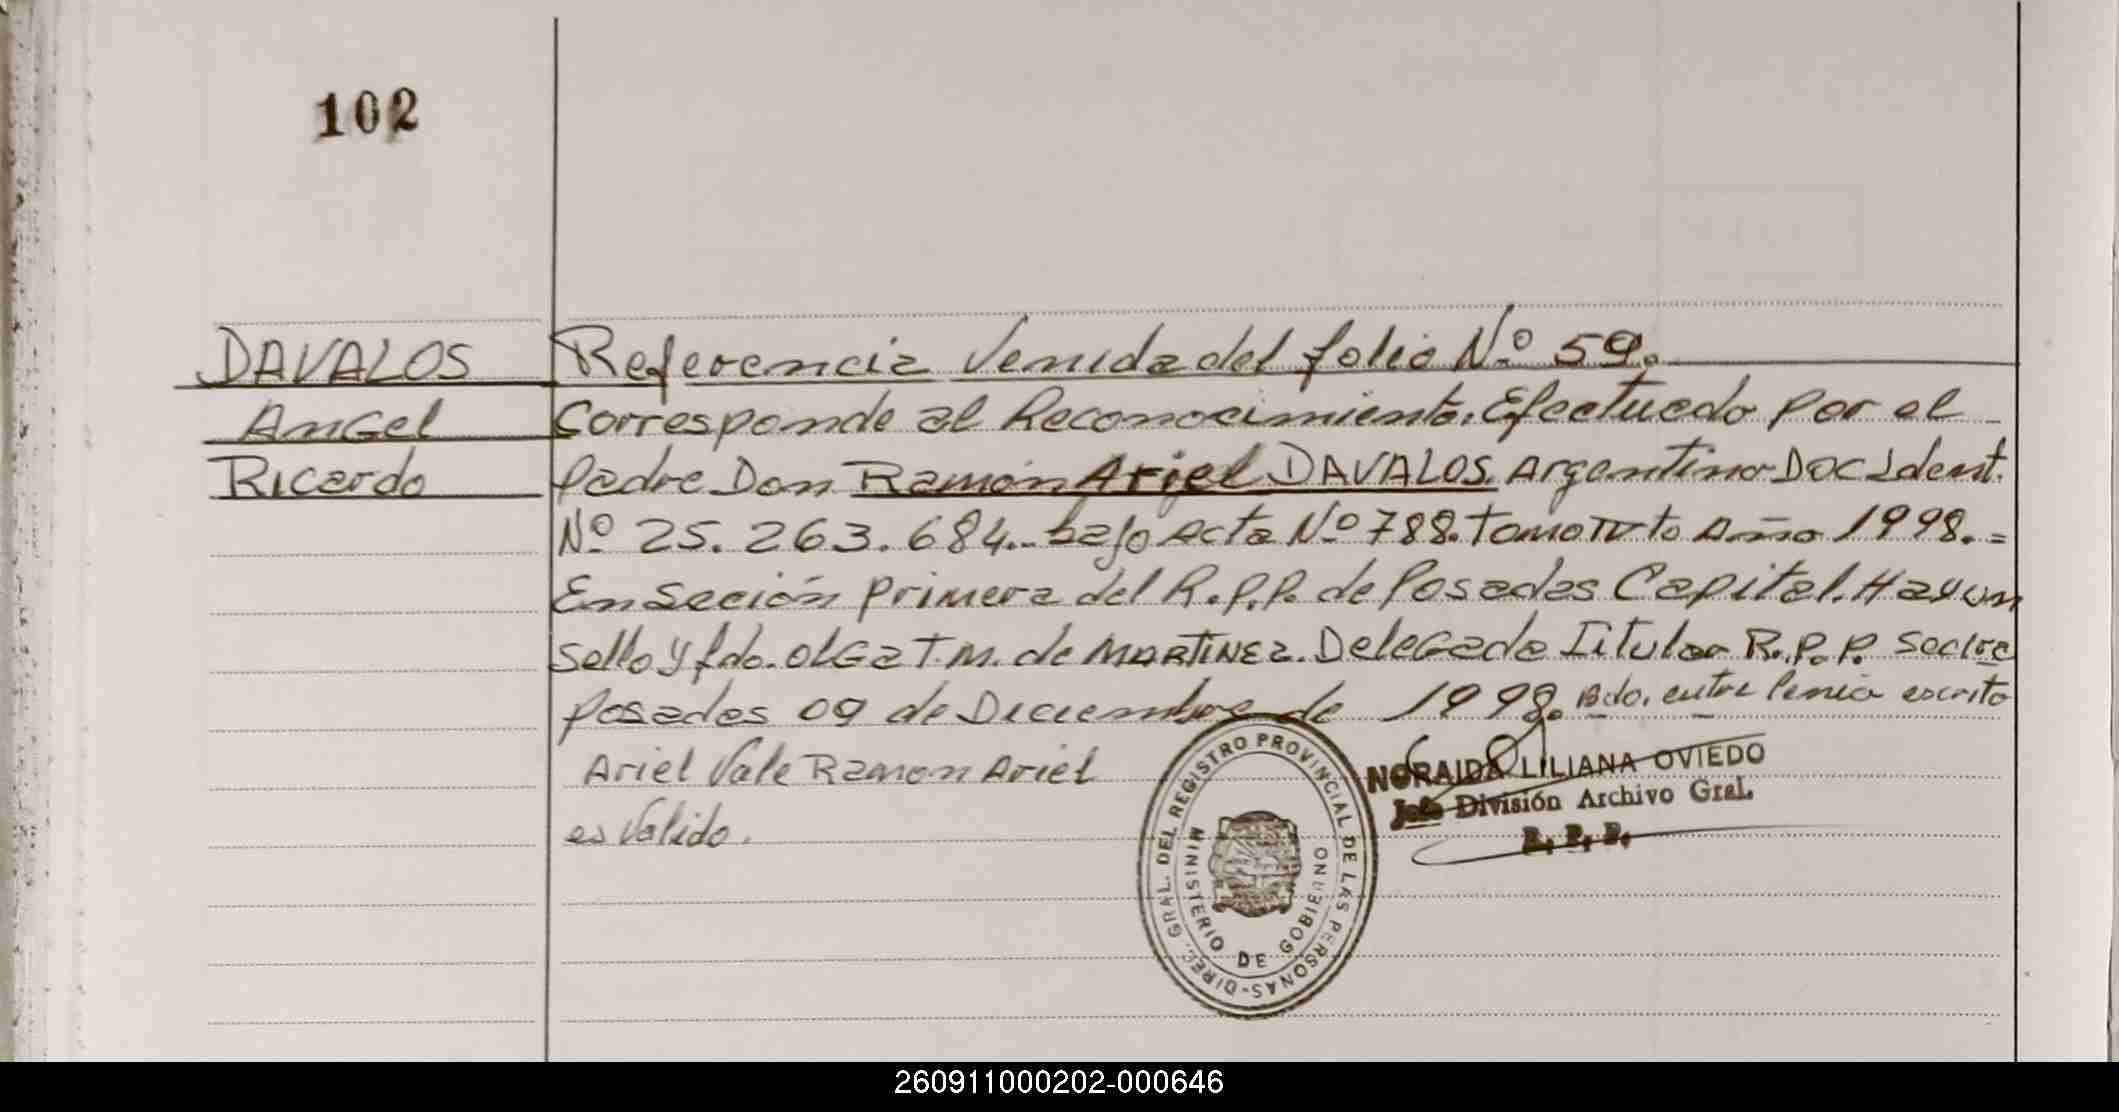 102
DAVALOS
Angel
Ricardo
Referencia Venida del folio Nº 59.
Corresponde al Reconocimiento. Efectuado por el
Padre Don Ramón Ariel DAVALOS. Argentino Doc Ident.
Nº 25.263.684.. bajo Acta Nº 788. Tomo IV to Año 1998.=
En Seción Primera del R.P.P. de Posadas Capital. Hay un
Sello y fdo. Olga T.M. de MARTINEZ. Delegada Titular R.P.P.
Posadas 09 de Diciembre de 1998. Bdo. entre lenia escrito
Ariel Vale Ramon Ariel
es Valido.
DIREC. GRAL. DEL REGISTRO PROVINCIAL DE LAS PERSONAS-
MINISTERIO DE GOBIERNO
NORAIDA LILIANA OVIEDO
Jefe División Archivo Gral.
R. P. P.
260911000202-000646